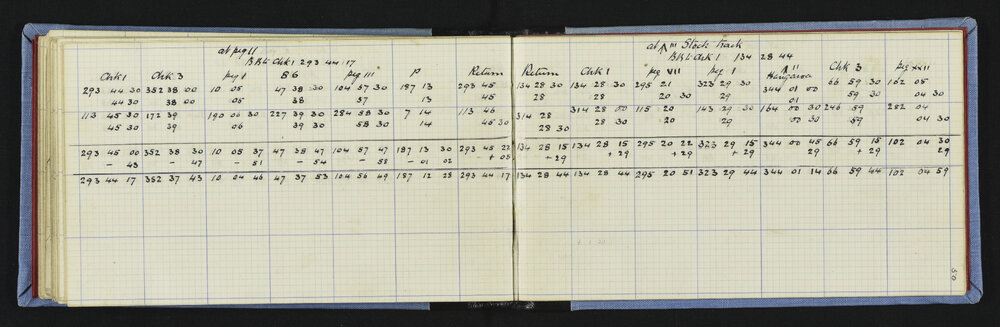 at peg II
BBL: Chk 1 293 44 17
Chk 1 Chk 3 peg 1 B6 peg III P Return
293 44 30 352 38 00 10 05 47 38 30 104 57 30 187 13 293 45
44 30 38 00 05 38 37 14 45
113 45 30 172 39 190 06 30 227 39 30 284 58 30 7 14 113 46
45 30 39 06 39 30 58 30 14 45 30
293 45 00 352 38 30 10 05 37 47 38 47 104 57 47 187 13 30 293 45 22
- 43 - 47 - 51 - 54 - 58 - 01 02 - + 05
293 44 17 352 37 43 10 04 46 47 37 53 104 56 49 187 12 28 293 44 17
at III Stock Track
BBL: Chk 1 134 28 44
Return Chk 1 peg VII peg 1 II Chk 3 peg XXII
134 28 30 134 28 30 295 21 323 29 30 344 01 00 66 59 30 102 05
28 28 20 30 29 01 59 30 04 30
314 28 314 28 00 115 20 143 29 30 164 00 30 246 59 282 04
28 30 28 30 20 29 00 30 59 04 30
134 28 15 134 28 15 295 20 22 323 29 15 344 00 45 66 59 15 102 04 30
+ 29 + 29 + 29 + 29 29 + 29 29
134 28 44 134 28 44 295 20 51 323 29 44 344 01 14 66 59 44 102 04 59
50